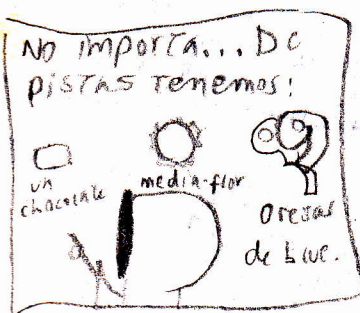 No importa... De
pistas tenemos:
un
chocolate
media-flor
orejas
de blue.